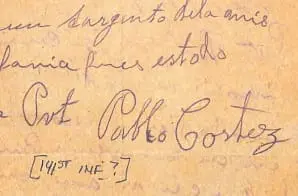 un sargento dela mis
pues estado
Pvt Pablo Cortez
[141ST INF ?]